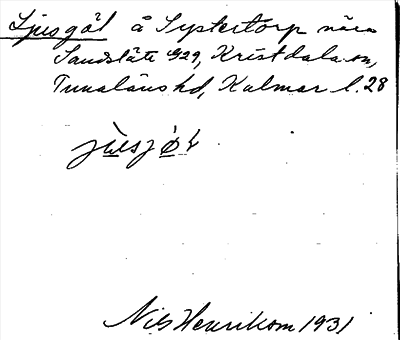 Ljusgöl å Systertorp nära
Sandslätt G29, Kristdala sn,
Tunaläns hd, Kalmar l. 28
Nils Henrikson 1931